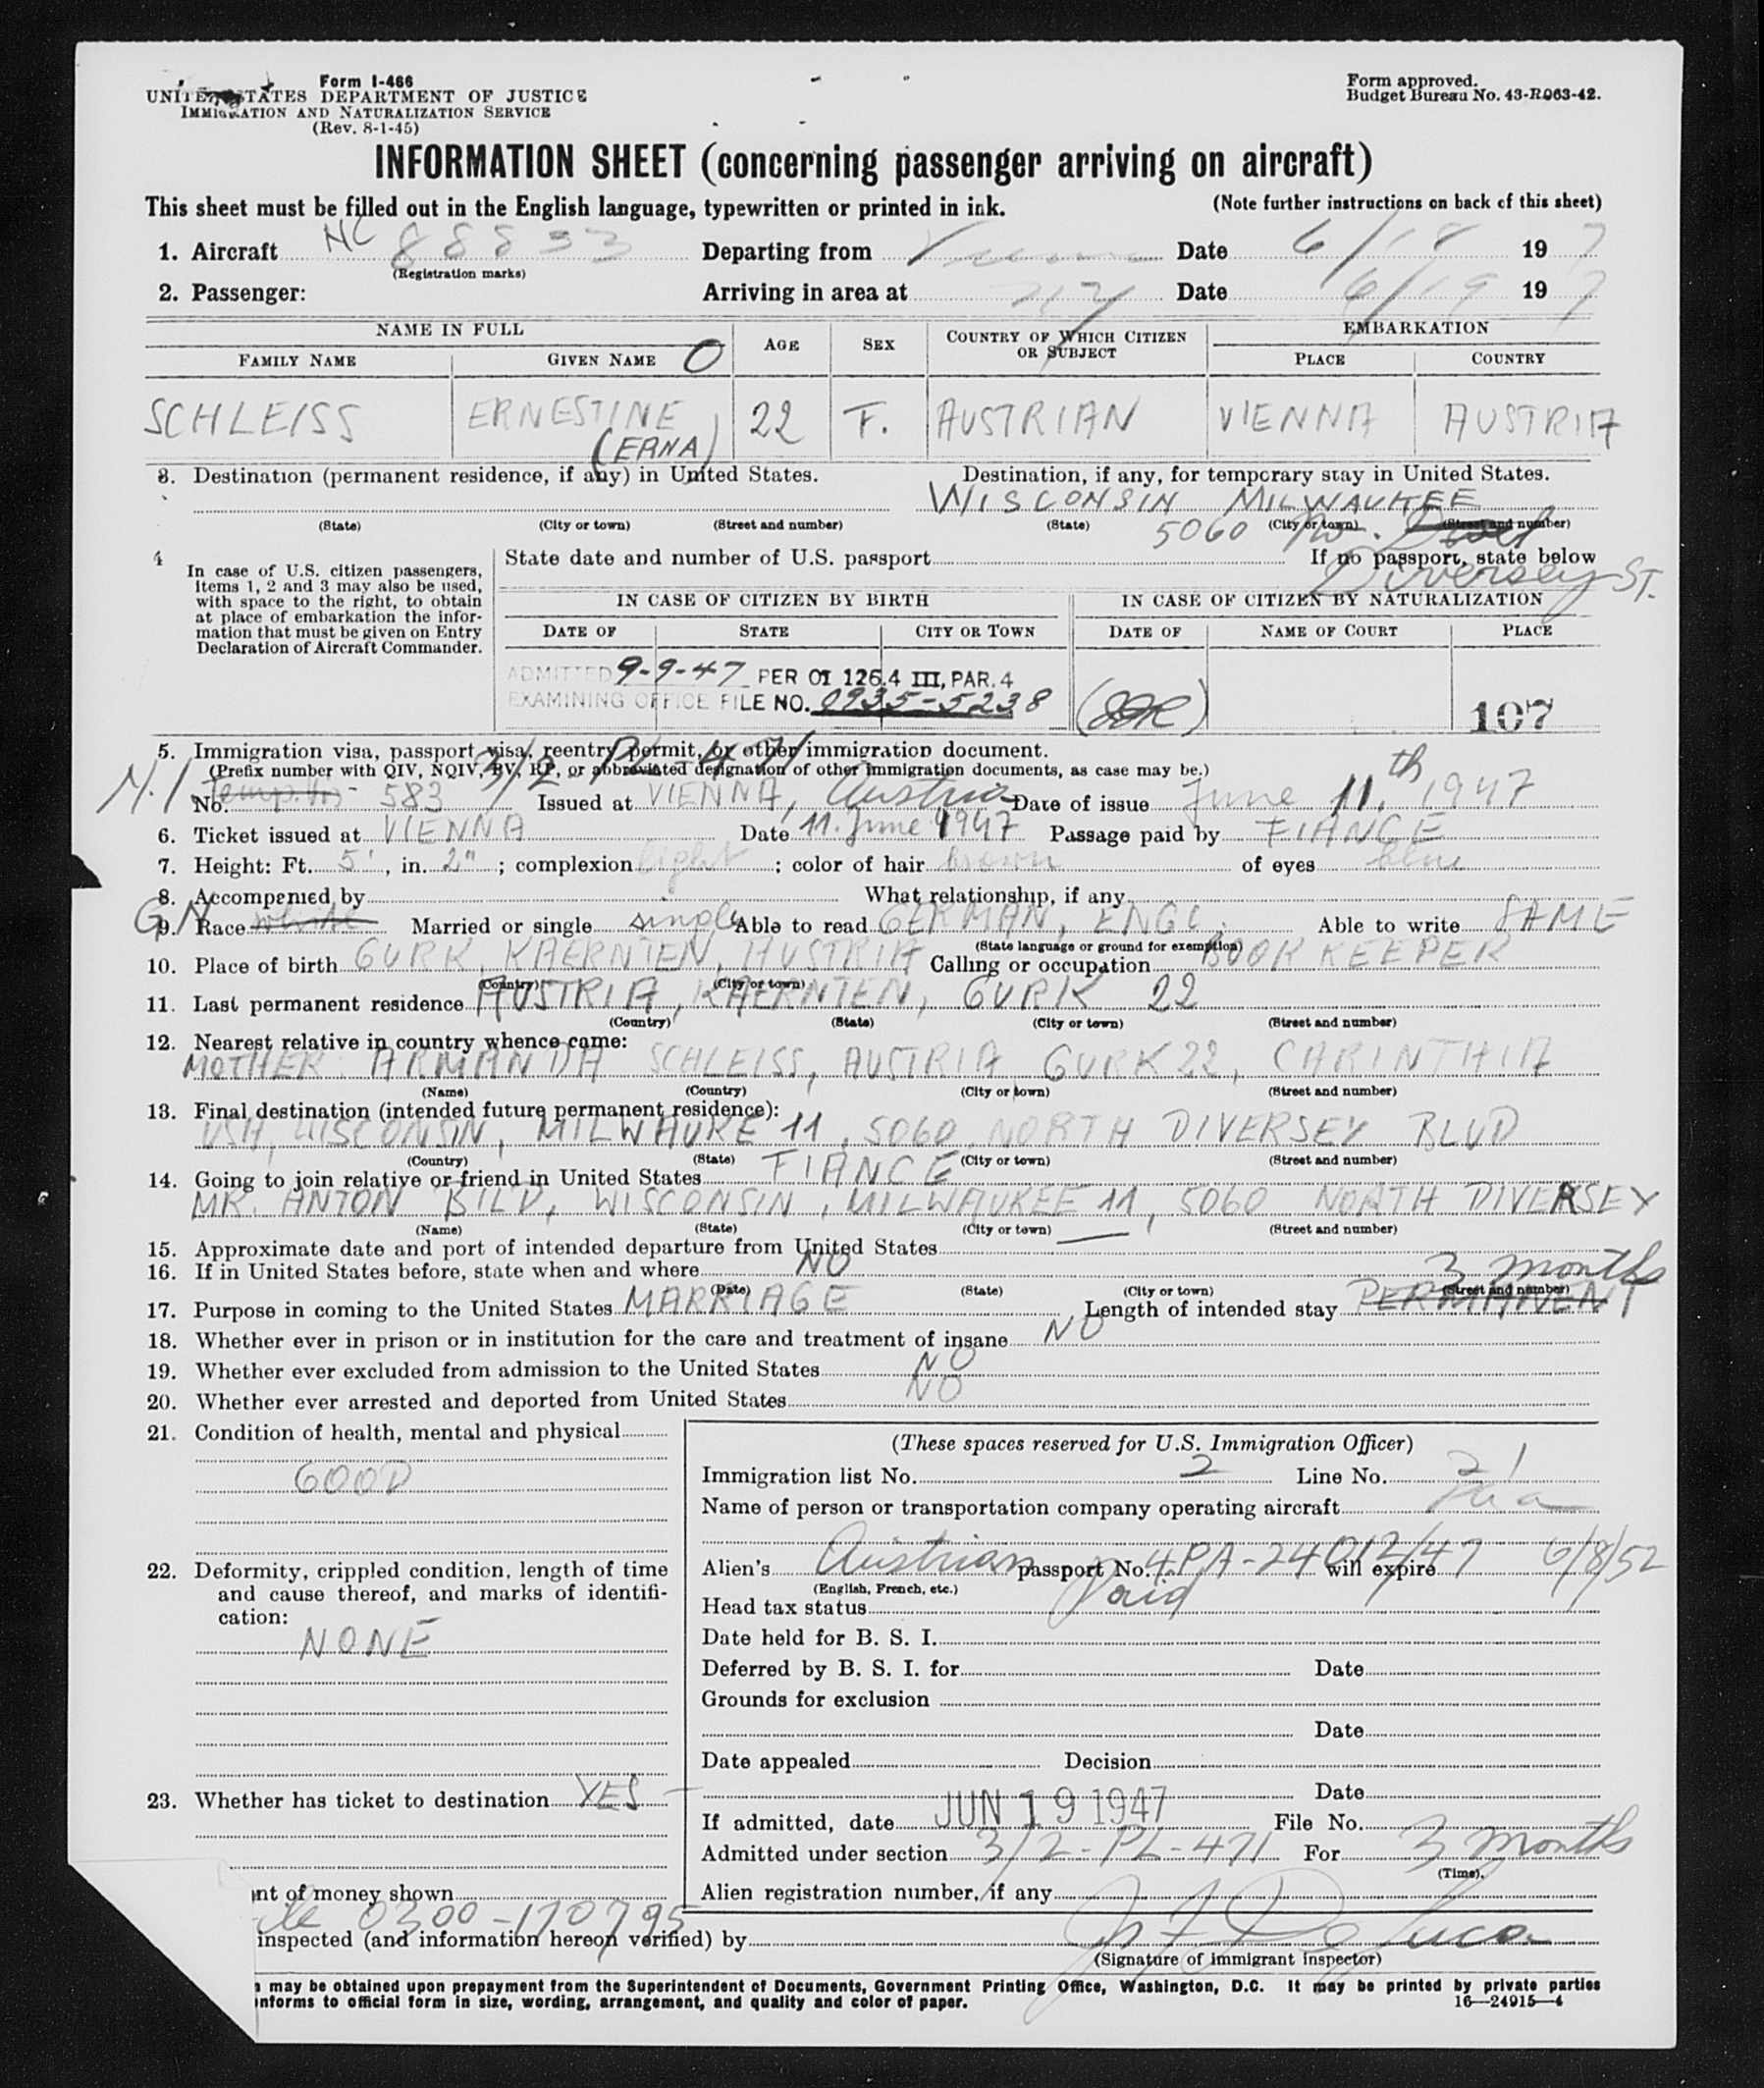 Form I-466
UNITED STATES DEPARTMENT OF JUSTICE
IMMIGRATION AND NATURALIZATION SERVICE
(Rev. 8-1-45)
Form approved.
Budget Bureau No. 43-R063-42.
INFORMATION SHEET (concerning passenger arriving on aircraft)
This sheet must be filled out in the English language, typewritten or printed in ink. (Note further instructions on back of this sheet)
1. Aircraft NC 88833 Departing from Vienna Date 6/18 197
(Registration marks)
2. Passenger: Arriving in area at NY Date 6/19 197
NAME IN FULL AGE SEX COUNTRY OF WHICH CITIZEN OR SUBJECT EMBARKATION
FAMILY NAME GIVEN NAME O PLACE COUNTRY
SCHLEISS ERNESTINE (ERNA) 22 F. AUSTRIAN VIENNA AUSTRIA
3. Destination (permanent residence, if any) in United States. Destination, if any, for temporary stay in United States.
WISCONSIN MILWAUKEE
(State) (City or town) (Street and number) (State) (City or town) (Street and number)
5060 No. Diversey ST.
4 In case of U.S. citizen passengers, items 1, 2 and 3 may also be used, with space to the right, to obtain at place of embarkation the information that must be given on Entry Declaration of Aircraft Commander.
State date and number of U.S. passport If no passport, state below
IN CASE OF CITIZEN BY BIRTH IN CASE OF CITIZEN BY NATURALIZATION
DATE OF STATE CITY OR TOWN DATE OF NAME OF COURT PLACE
ADMITTED 9-9-47 PER OI 126.4 III, PAR. 4
EXAMINING OFFICE FILE NO. 0935-5238
107
5. Immigration visa, passport visa, reentry permit, or other immigration document.
3/2-PL-471
(Prefix number with QIV, NQIV, PV, RP, or abbreviated designation of other immigration documents, as case may be.)
No. Temp. Vis - 583 Issued at VIENNA, Austria Date of issue June 11.th 1947
6. Ticket issued at VIENNA Date 11. June 1947 Passage paid by FIANCE
7. Height: Ft. 5', in. 2" ; complexion light ; color of hair brown of eyes blue
8. Accompanied by What relationship, if any
9. Race white GN Married or single single Able to read GERMAN, ENGL. Able to write SAME
(State language or ground for exemption)
10. Place of birth GURK, KAERNTEN, AUSTRIA Calling or occupation BOOK KEEPER
(Country) (City or town)
11. Last permanent residence AUSTRIA, KAERNTEN, GURK 22
(Country) (State) (City or town) (Street and number)
12. Nearest relative in country whence came:
MOTHER: ARMANDA SCHLEISS, AUSTRIA GURK 22, CARINTHIA
(Name) (Country) (City or town) (Street and number)
13. Final destination (intended future permanent residence):
USA, WISCONSIN, MILWAUKE 11, 5060, NORTH DIVERSEY BLVD
(Country) (State) (City or town) (Street and number)
14. Going to join relative or friend in United States FIANCE
MR. ANTON BILD, WISCONSIN, MILWAUKEE 11, 5060 NORTH DIVERSEY
(Name) (State) (City or town) (Street and number)
15. Approximate date and port of intended departure from United States
16. If in United States before, state when and where NO
(Date) (State) (City or town) (Street and number)
3 months
17. Purpose in coming to the United States MARRIAGE Length of intended stay PERMANENT
18. Whether ever in prison or in institution for the care and treatment of insane NO
19. Whether ever excluded from admission to the United States NO
20. Whether ever arrested and deported from United States NO
21. Condition of health, mental and physical
GOOD
22. Deformity, crippled condition, length of time and cause thereof, and marks of identification:
NONE
23. Whether has ticket to destination YES
(These spaces reserved for U.S. Immigration Officer)
Immigration list No. 2 Line No. 21
Name of person or transportation company operating aircraft
Alien's Austrian passport No. 4PA-24012/47 will expire 6/8/52
(English, French, etc.)
Head tax status Paid
Date held for B. S. I.
Deferred by B. S. I. for Date
Grounds for exclusion
Date
Date appealed Decision
Date
If admitted, date JUN 19 1947 File No.
Admitted under section 3/2-PL-471 For 3 months
(Time).
nt of money shown Alien registration number, if any
0300-170795
inspected (and information hereon verified) by J F DeLuca
(Signature of immigrant inspector)
may be obtained upon prepayment from the Superintendent of Documents, Government Printing Office, Washington, D.C. It may be printed by private parties
nforms to official form in size, wording, arrangement, and quality and color of paper. 16—24915—4